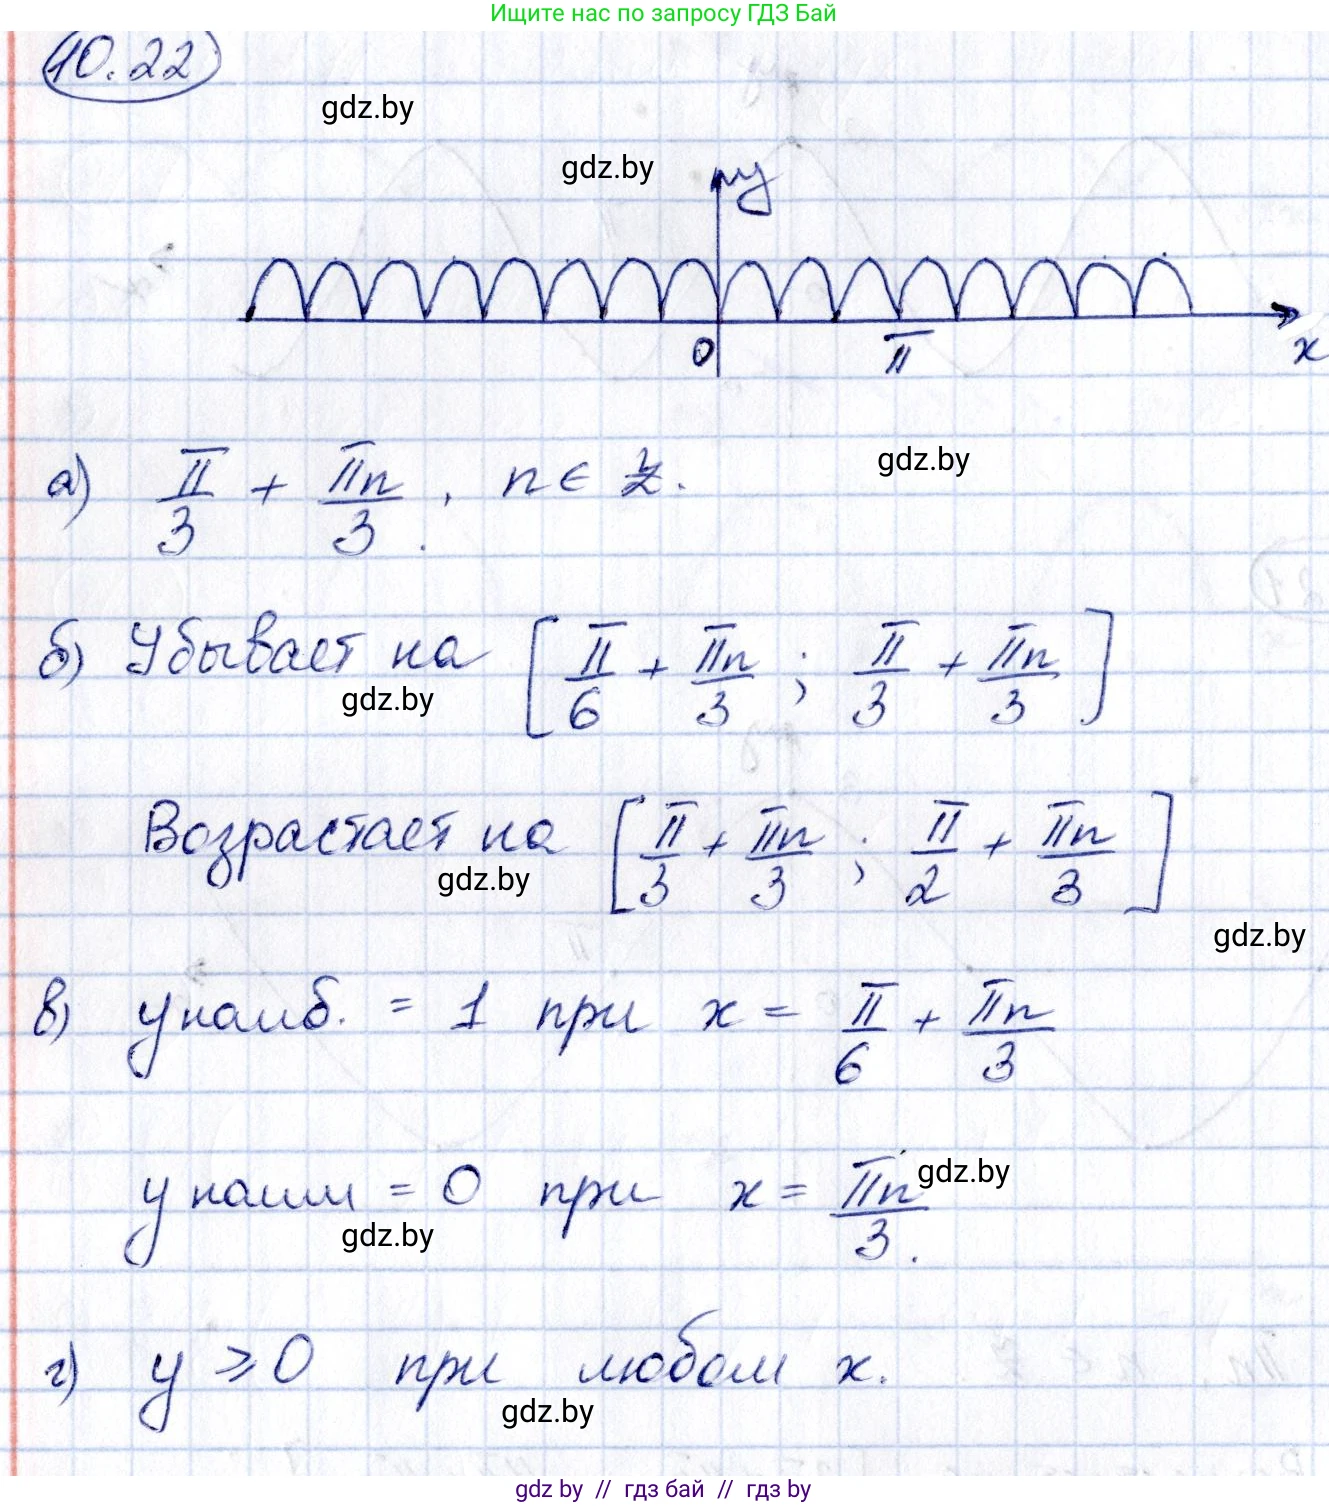 Ищите нас по запросу ГДЗ Бай
10.22
gdz.by
gdz.by
y
0
π
x
gdz.by
а) π/3 + πn/3, n ∈ Z.
б) Убывает на [π/6 + πn/3; π/3 + πn/3]
gdz.by
Возрастает на [π/3 + πn/3; π/2 + πn/3]
gdz.by
gdz.by
в) y наиб. = 1 при x = π/6 + πn/3
y наим = 0 при x = πn/3.
gdz.by
gdz.by
г) y ⩾ 0 при любом x.
gdz.by
gdz by // гдз бай // gdz by